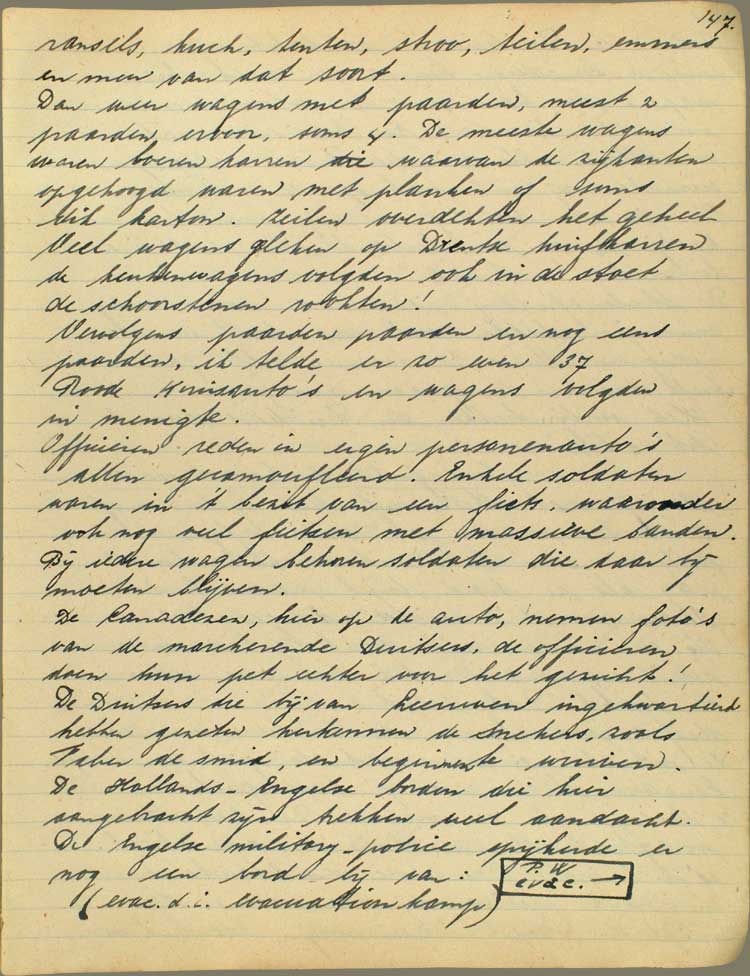 147.
ransels, kuch, tenten, stroo, teilen, emmers
en meer van dat soort.
Dan weer wagens met paarden, meest 2
paarden ervoor, soms 4. De meeste wagens
waren boeren karren die waarvan de zijkanten
opgehoogd waren met planken of soms
dik karton. Zeilen overdekten het geheel
Veel wagens gleken op Drentse huifkarren
de keukenwagens volgden ook in de stoet
de schoorstenen rookten!
Vervolgens paarden paarden en nog eens
paarden, ik telde er zo even 37
Roode Kruisauto's en wagens volgden
in menigte.
Officieren reden in eigen personenauto's
allen gecamoufleerd. Enkele soldaten
waren in 't bezit van een fiets, waaronder
ook nog veel fietsen met massieve banden.
Bij iedere wagen behoren soldaten die daar bij
moeten blijven.
De Canadezen, hier op de auto, nemen foto's
van de marcherende Duitsers, de officieren
doen hun pet echter voor het gezicht!
De Duitsers die bij van Leeuwen ingekwartierd
hebben gezeten herkennen de Snekers, zoals
Faber de smid, en beginnen te wuiven.
De Hollands-Engelse borden die hier
aangebracht zijn trekken veel aandacht.
De Engelse military-police spijkerde er
nog een bord bij van:
P. W
evac. →
(evac. d.i. evacuation kamp)